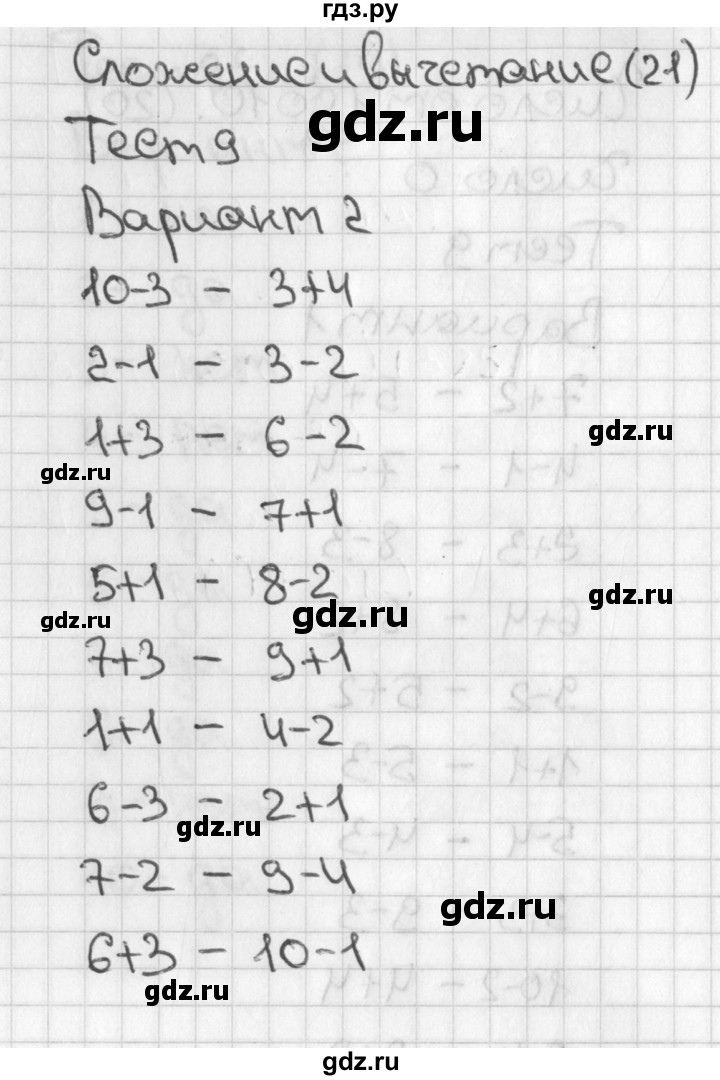 гдз.ру
Сложение и вычетание (21)
gdz.ru
Тест 9
Вариант 2
10-3 - 3+4
2-1 - 3-2
1+3 - 6-2
gdz.ru
gdz.ru
9-1 - 7+1
5+1 - 8-2
gdz.ru
gdz.ru
gdz.ru
7+3 - 9+1
1+1 - 4-2
6-3 - 2+1
gdz.ru
7-2 - 9-4
gdz.ru
6+3 - 10-1
gdz.ru
gdz.ru